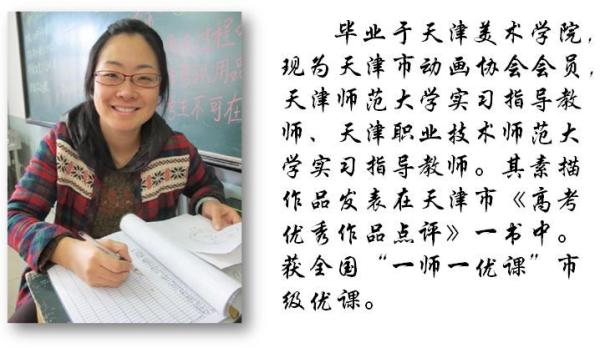 毕业于天津美术学院，
现为天津市动画协会会员，
天津师范大学实习指导教
师、天津职业技术师范大
学实习指导教师。其素描
作品发表在天津市《高考
优秀作品点评》一书中。
获全国“一师一优课”市
级优课。
生不可在